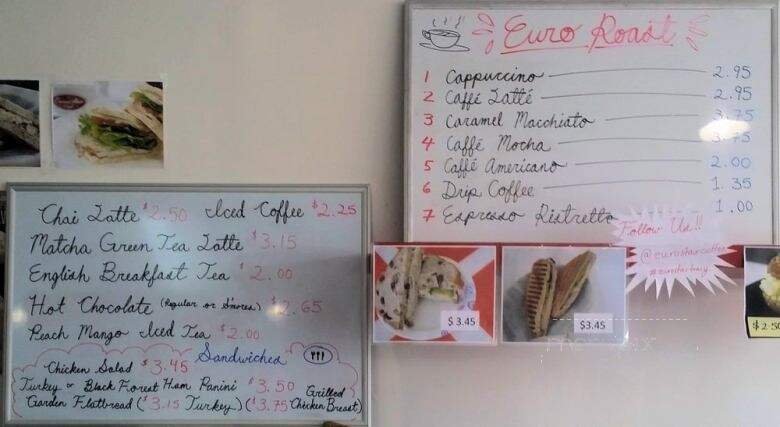 Euro Roast
1 Cappuccino 2.95
2 Caffé Latté 2.95
3 Caramel Macchiato 3.75
4 Caffé Mocha 3.75
5 Caffé Americano 2.00
6 Drip Coffee 1.35
7 Espresso Ristretto 1.00
Follow Us!!
Chai Latte $2.50 Iced Coffee $2.25
Matcha Green Tea Latte $3.15
English Breakfast Tea $2.00
Hot Chocolate (Regular or S'mores) $2.65
Peach Mango Iced Tea $2.00
Sandwiches
Chicken Salad $3.45
Turkey or Black Forest Ham Panini $3.50
Garden Flatbread ($3.15 Turkey) ($3.75 Grilled Chicken Breast)
$3.45
$3.45
$2.50